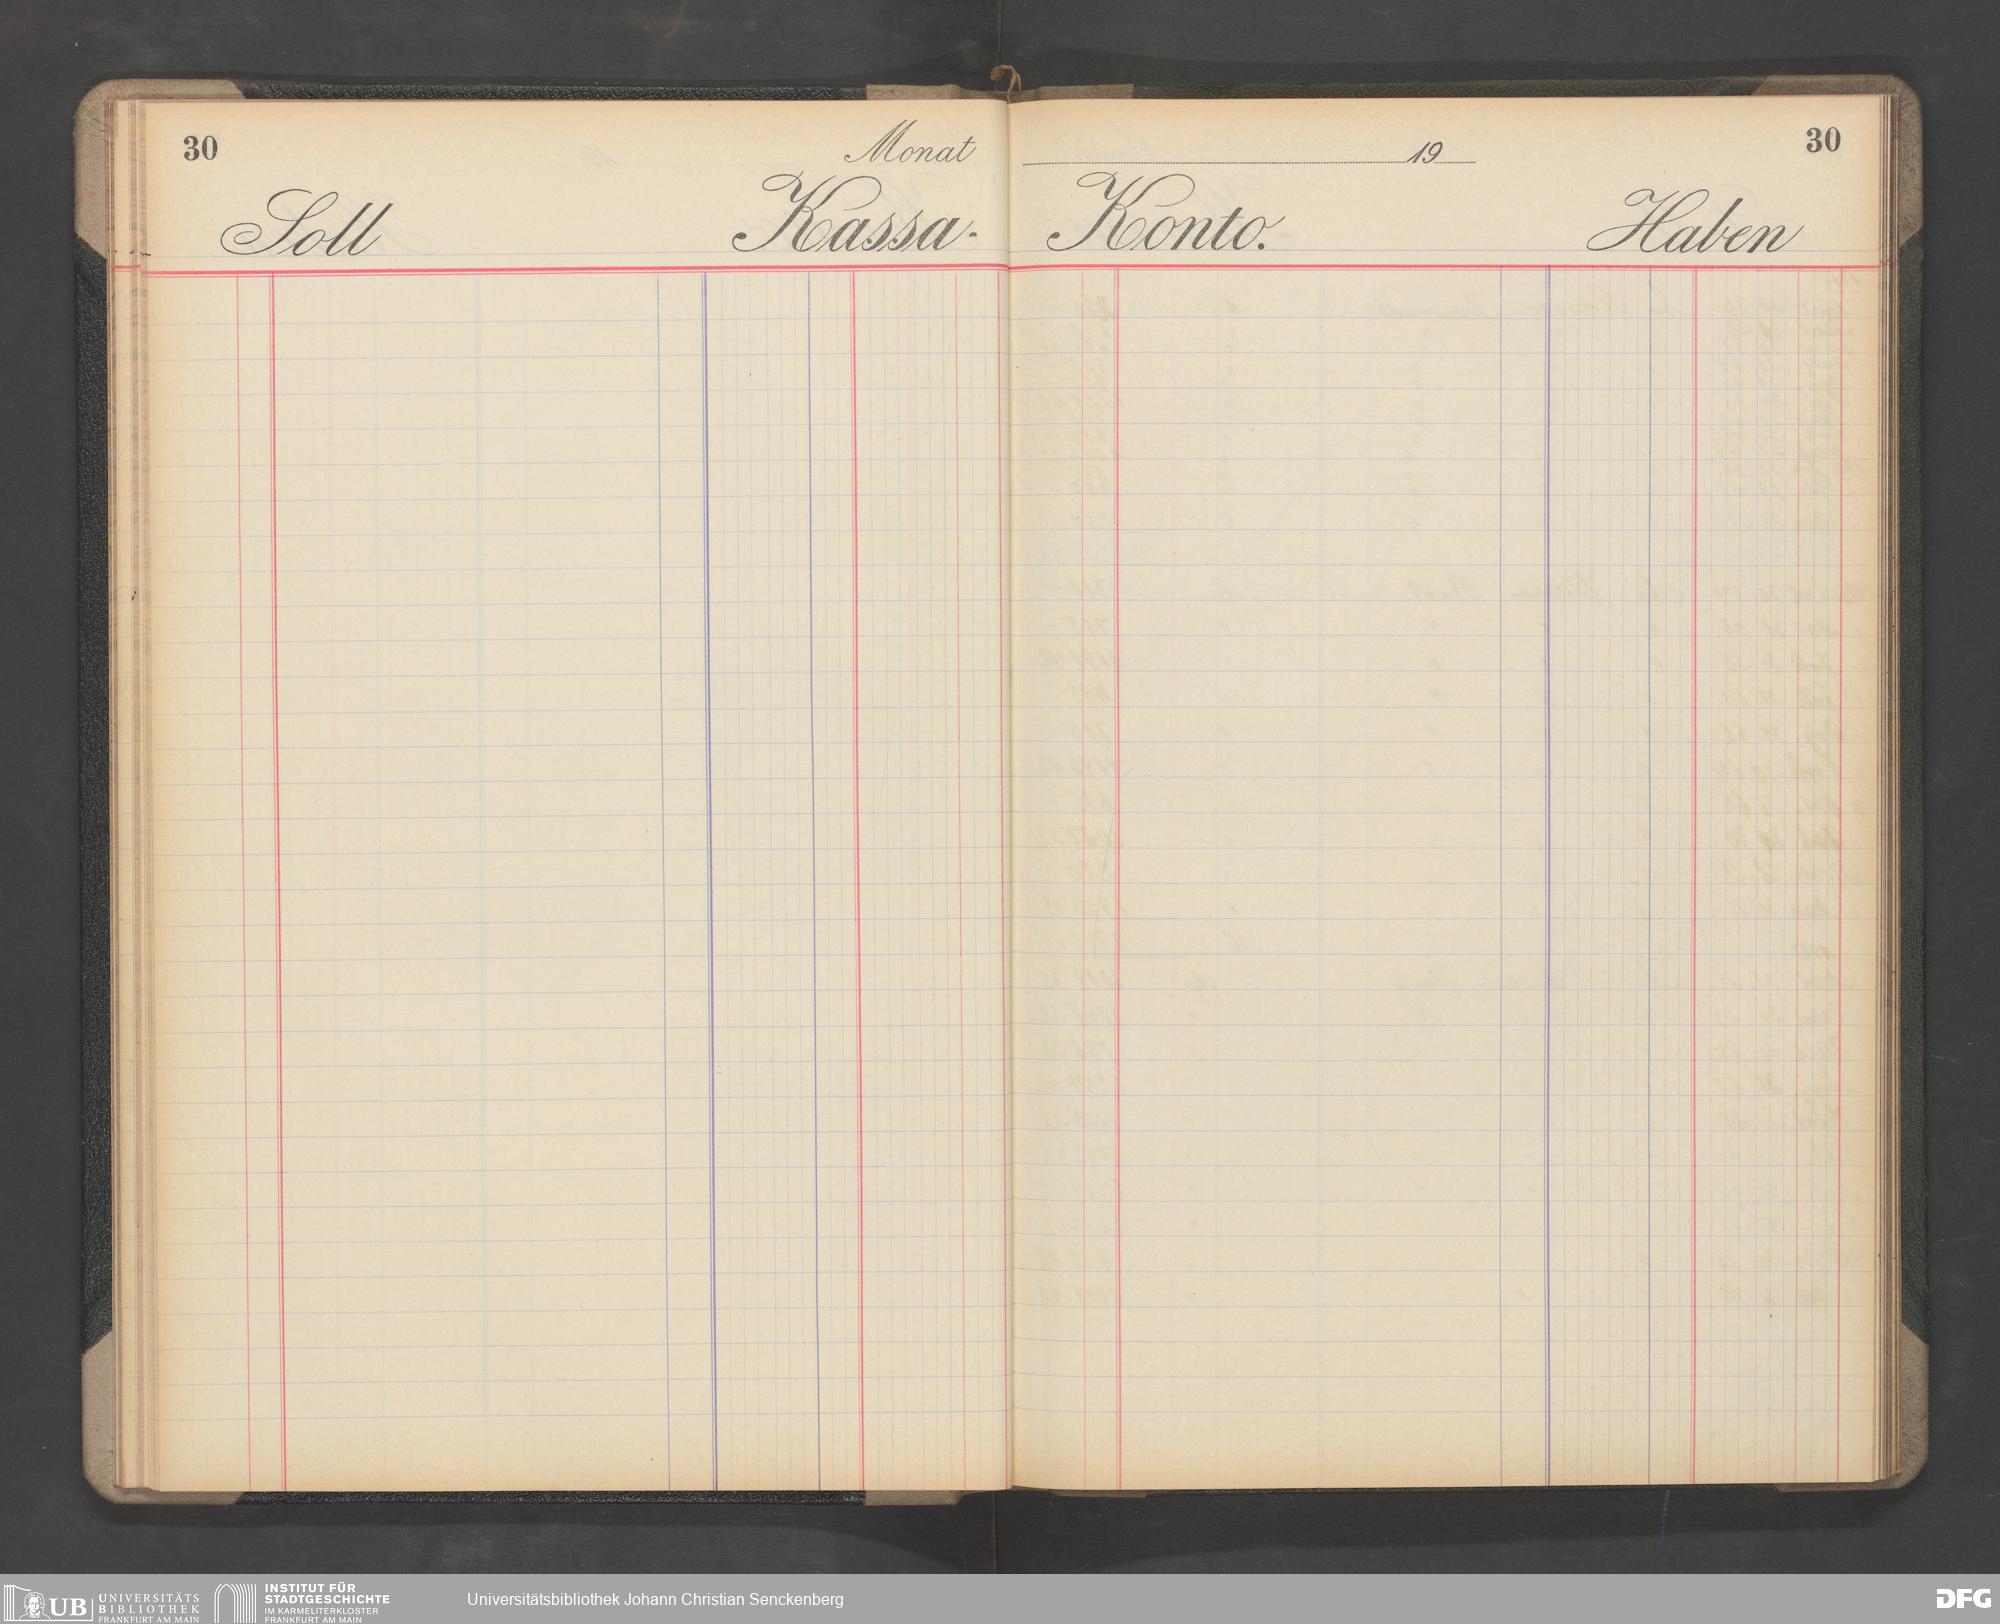 30
Monat
19
30
Soll
Kassa-
Konto.
Haben
UB
UNIVERSITÄTS
BIBLIOTHEK
FRANKFURT AM MAIN
INSTITUT FÜR
STADTGESCHICHTE
IM KARMELITERKLOSTER
FRANKFURT AM MAIN
Universitätsbibliothek Johann Christian Senckenberg
DFG